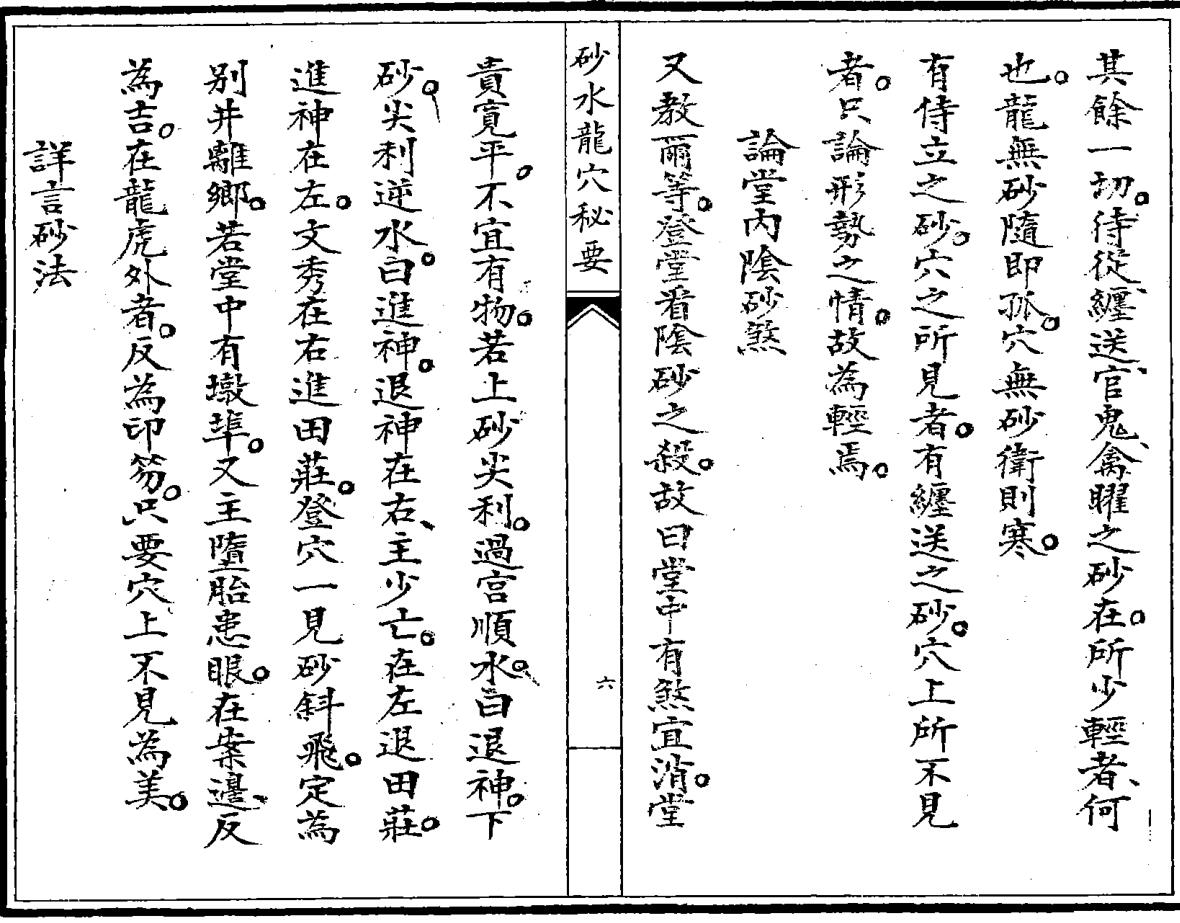 其餘一切。侍從、纏送、官鬼、禽曜之砂。在所少輕者、何
也。龍無砂隨即孤。穴無砂衛則寒。
有侍立之砂。穴之所見者。有纏送之砂。穴上所不見
者。只論形勢之情。故為輕焉。
論堂內陰砂煞
又教爾等。登堂看陰砂之殺。故曰堂中有煞宜消。堂
砂水龍穴秘要
六
貴寬平。不宜有物。若上砂尖利。過宮順水。曰退神。下
砂。尖利逆水。曰進神。退神在右、主少亡。在左退田莊。
進神在左。文秀在右進田莊。登穴一見砂斜飛。定為
別井離鄉。若堂中有墩埠。又主墮胎患眼。在案邊、反
為吉。在龍虎外者。反為印笏。只要穴上不見為美。
詳言砂法